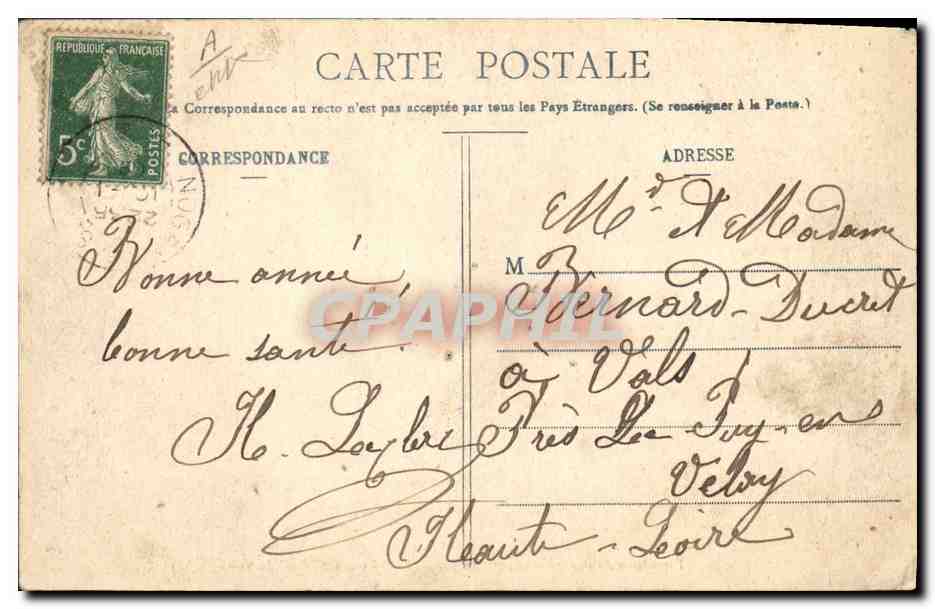 RÉPUBLIQUE FRANÇAISE
5c
POSTES
A
CARTE POSTALE
La Correspondance au recto n'est pas acceptée par tous les Pays Étrangers. (Se renseigner à la Poste.)
CORRESPONDANCE
Bonne année
bonne santé!
H.
ADRESSE
Mr et Madame
M
Bernard-Ducret
à Vals
Près Le Puy-en
Velay
Haute-Loire
CPAPHIL